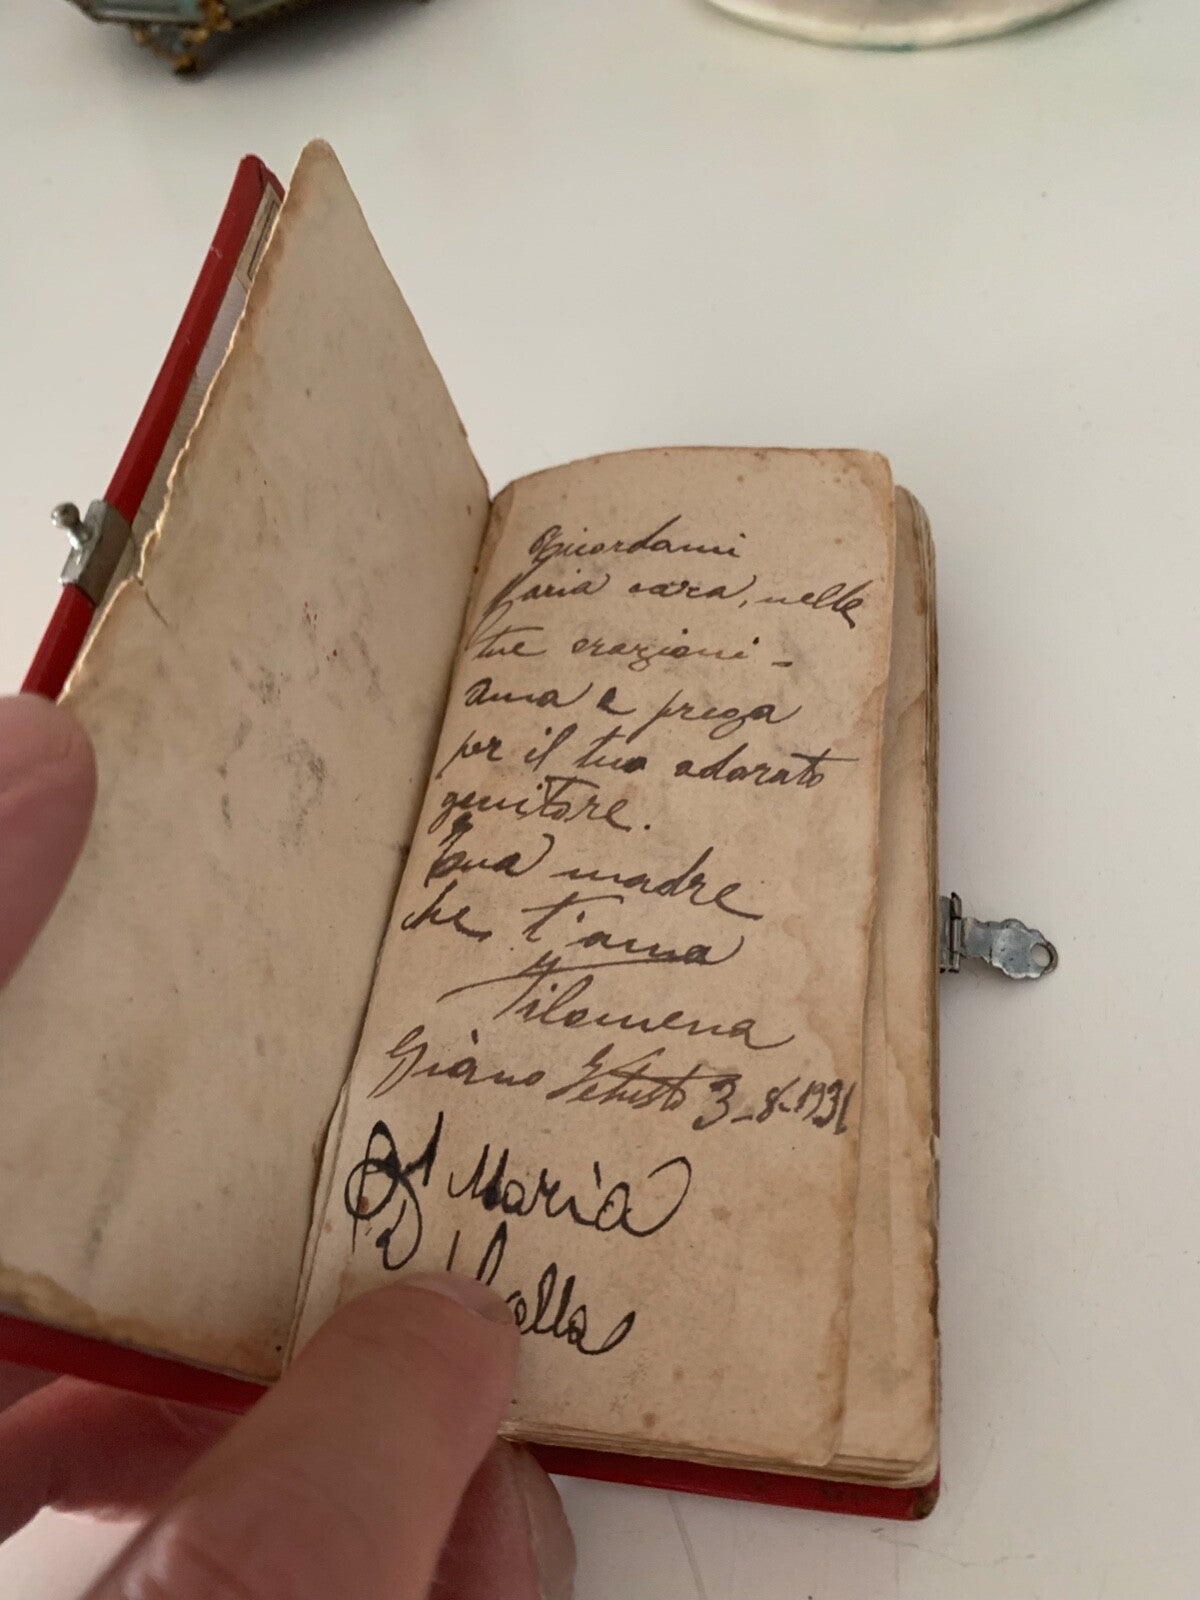 Ricordami
Maria cara, nelle
tue orazioni -
ama e prega
per il tuo adorato
genitore.
Tua madre
che t'ama
Filomena
Giano Vetusto 3-8-1931
Maria